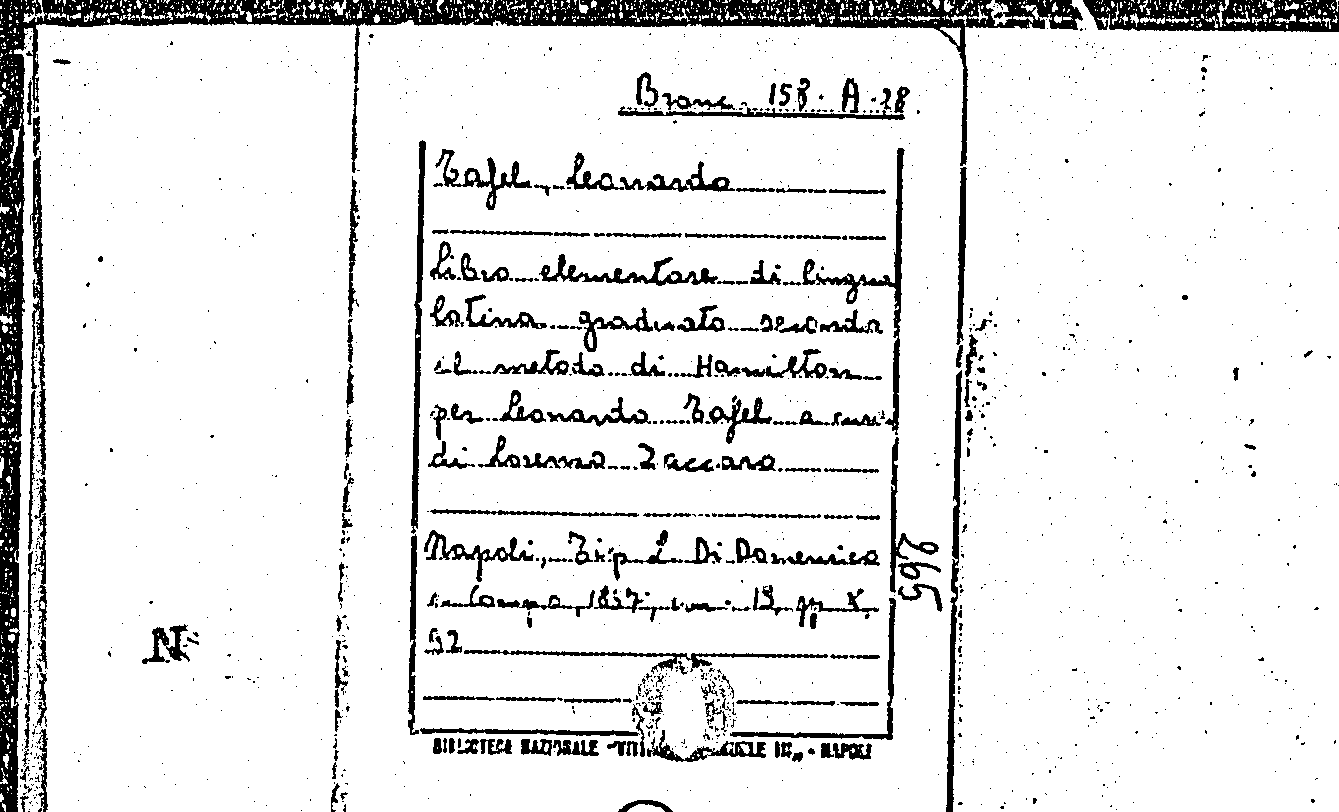 Branc. 158. A. 28
Tafel, Leonardo
Libro elementare di lingua
latina graduato secondo
il metodo di Hamilton
per Leonardo Tafel a cura
di Lorenzo Zaccaro
Napoli, Tip L Di Domenico
e Comp., 1857, cm. 19, pp X,
92
265
N
BIBLIOTECA NAZIONALE "VITT EMANUELE III„ - NAPOLI